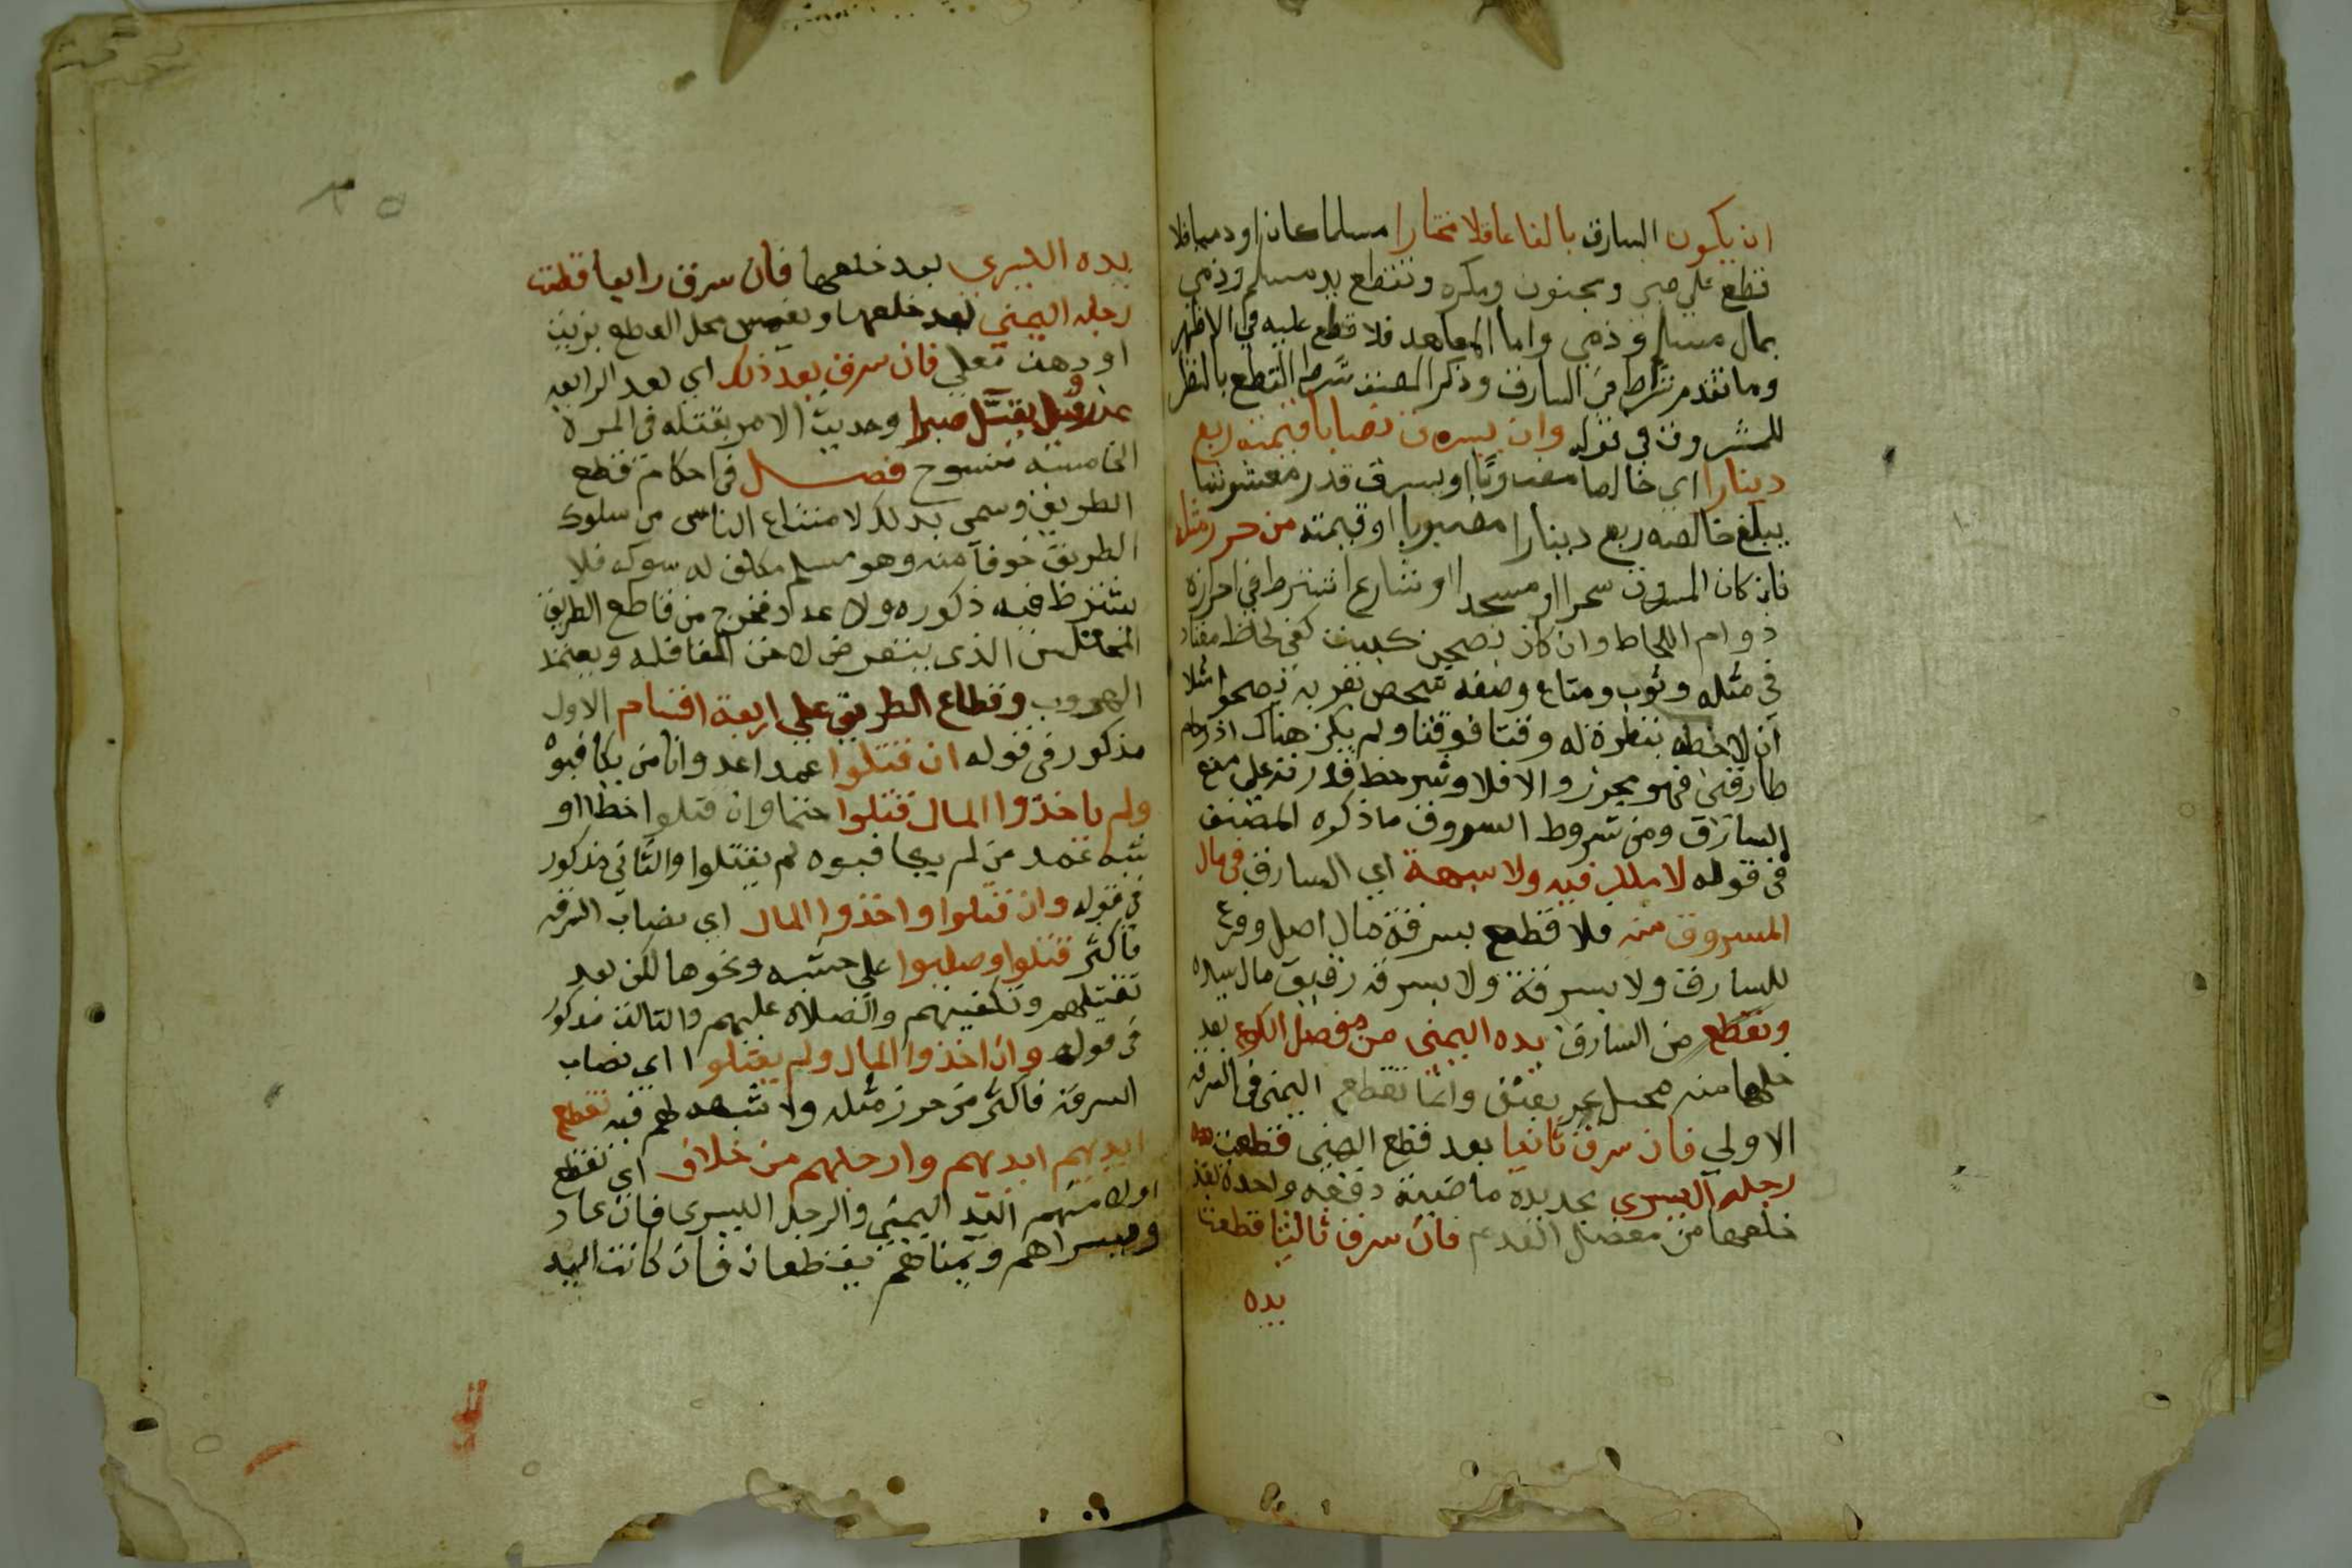 ان يكون السارق بالغا عاقلا مختارا مسلما كان او ذميا فلا
قطع علي صبي ومجنون ومكره وتقطع يد مسلم وذمي
بمال مسلم وذمي واما المعاهد فلا قطع عليه في الاظهر
وما تقدم شرط في السارق وذكر المصنف شرط القطع بالنظر
للمسروق في قوله وان يسرق نصابا قيمته ربع
دينارا اي خالصا مضروبا او يسرق قدر مغشوشا
يبلغ خالصه ربع دينارا مضروبا او قيمته من حرز مثله
فان كان المسروق سحرا او مسجدا او شارع اشترط في احرازه
دوام اللحاظ وان كان بصحن كبيت كفي لحاظ معتاد
في مثله وثوب ومتاع وضعه شخص بقربه بصحرا مثلا
ان لاحظه بنظره له وقتا فوقتا ولم يكن هناك ازدحام
طارقين فهو محرز والا فلا وشرط قدرته علي منع
السارق ومن شروط السروق ما ذكره المصنف
في قوله لا ملك فيه ولا شبهة اي السارق في مال
المسروق منه فلا قطع بسرقة مال اصل وفرع
للسارق ولا بسرقة ولا بسرقه رقيق مال سيده
وتقطع من السارق يده اليمني من مفصل الكوع بعد
خلعها منه بحبل يجر بعنف وانما تقطع اليمني في السرقه
الاولي فان سرق ثانيا بعد قطع اليمني قطعت
رجله اليسري بحديده ماضية دفعه واحدة بعد
خلعها من مفصل القدم فان سرق ثالثا قطعت
يده
يده اليسري بعد خلعها فان سرق رابعا قطعت
رجله اليمني بعد خلعها ويغمس محل القطع بزيت
او دهن مغلي فان سرق بعد ذلك اي بعد الرابعه
عزر وقيل يقتل صبرا وحديث الامر بقتله في المرة
الخامسه منسوخ فصل في احكام قطع
الطريق وسمي بذلك لامتناع الناس من سلوك
الطريق خوفا منه وهو مسلم مكلف له شوكه فلا
يشترط فيه ذكوره ولا عدد فخرج من قاطع الطريق
المختلس الذي يتعرض لاخر القافله ويعتمد
الهروب وقطاع الطريق علي اربعة اقسام الاول
مذكور في قوله ان قتلوا عمدا عدوانا من يكافيوه
ولم ياخذوا المال قتلوا حتما وان قتلوا خطا او
شبه عمد من لم يكافيوه لم يقتلوا والثاني مذكور
في قوله وان قتلوا واخذوا المال اي نصاب السرقه
فاكثر قتلوا وصلبوا علي خشبه ونحوها لكن بعد
تغسيلهم وتكفينهم والصلاه عليهم والثالث مذكور
في قوله وان اخذوا المال ولم يقتلوا اي نصاب
السرقه فاكثر من حرز مثله ولا شبهه لهم فيه تقطع
ايديهم ايديهم وارجلهم من خلاف اي تقطع
اولا منهم اليد اليمني والرجل اليسري فان عاد
وفيسراهم ويمناهم يقطعان فان كانت اليد